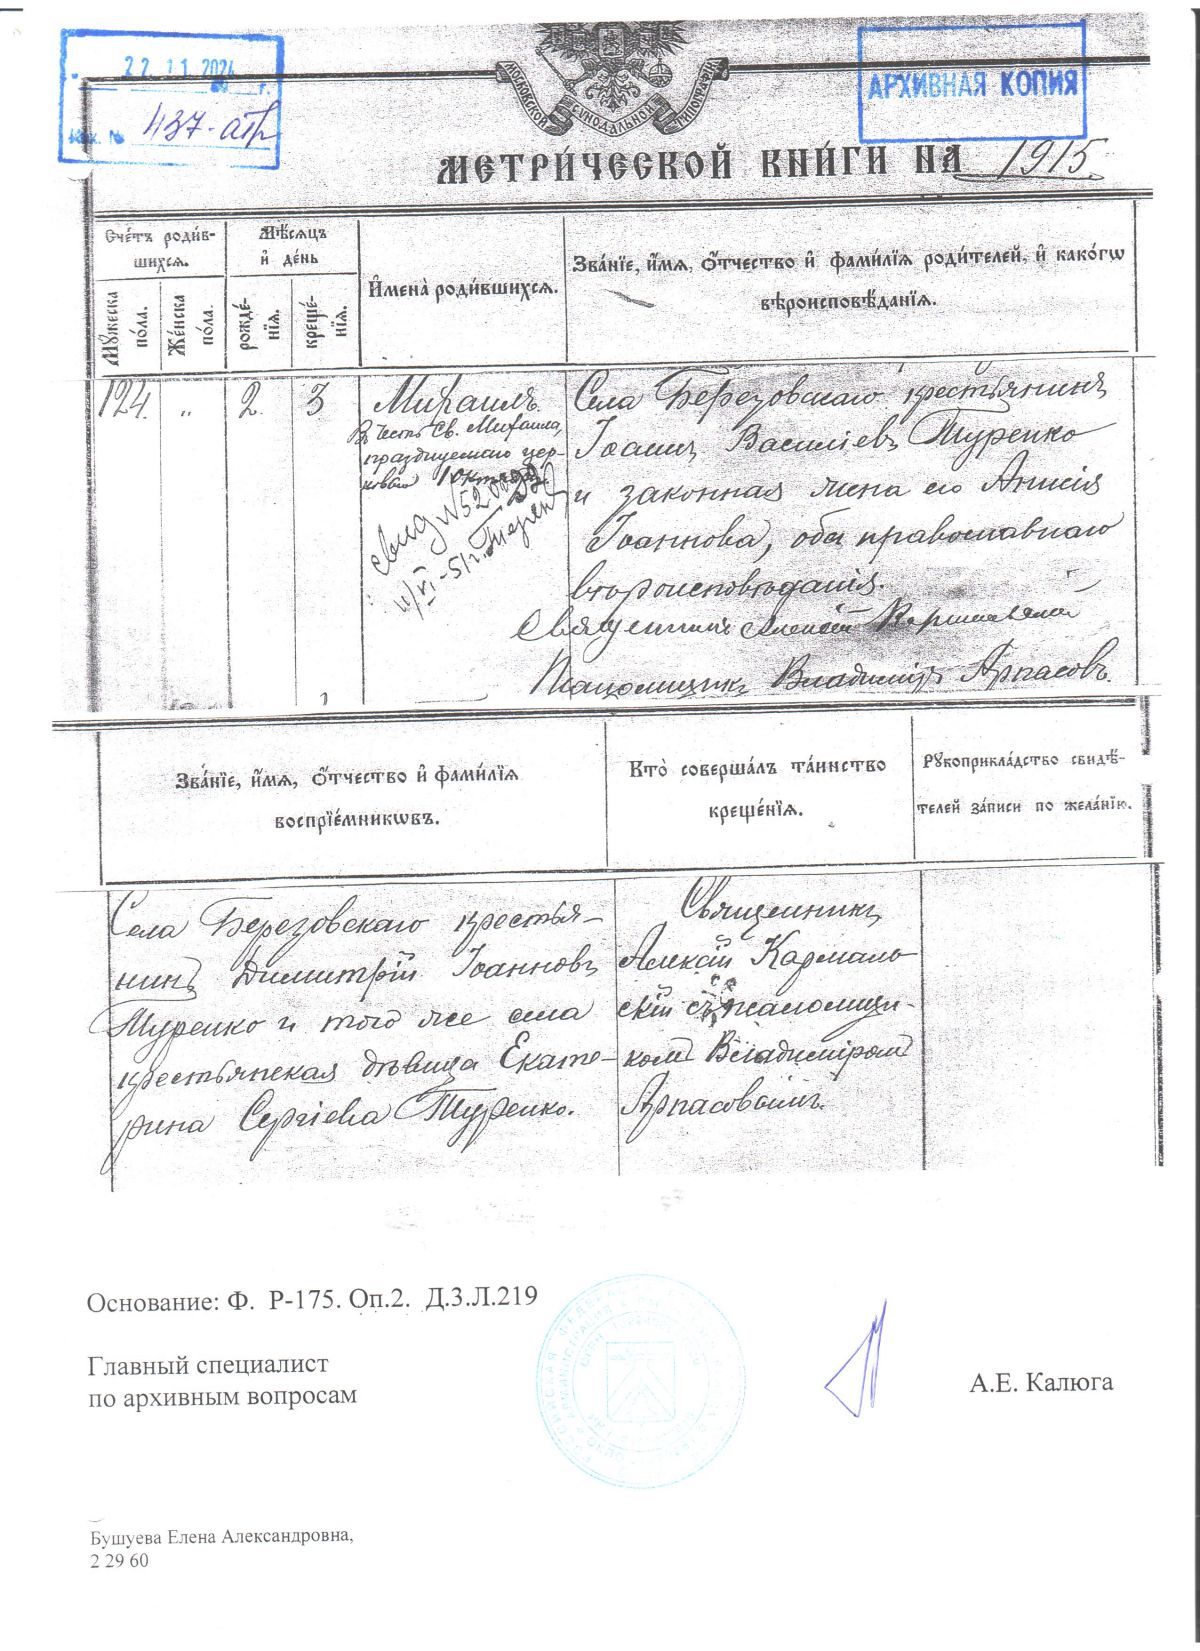 22 11 2024
г.
№ 437-
АРХИВНАЯ КОПИЯ
МОСКОВСКОЙ СѴНОДАЛЬНОЙ ТИПОГРАФІИ
МЕТРИ́ЧЕСКОЙ КНИ́ГИ НА 1915.
Сче́тъ роди́в-
шихсѧ.
Мѣ́сѧцъ
и҆ де́нь
И҆мена̀ роди́вшихсѧ.
Зва́нїе, и҆́мѧ, ѻ҆́тчество и҆ фами́лїѧ роди́телей, и҆ како́гѡ
вѣроисповѣ́данїѧ.
Мꙋ́жеска
по́ла.
Же́нска
по́ла.
рожде́-
нїѧ.
креще́-
нїѧ.
124. „ 2. 3
Михаилъ.
Въ честь Св. Михаила,
празднуемаго цер-
ковью 1 октября
свид № 520
Села Березовскаго крестьянинъ
Іоаннъ Василіевъ Туренко
и законная жена его Анисія
Іоаннова, оба православнаго
вѣроисповѣданія.
Священникъ Алексій Кармальскій
Псаломщикъ Владиміръ Арпасовъ.
Зва́нїе, и҆́мѧ, ѻ҆́тчество и҆ фами́лїѧ
воспрїе́мникѡвъ.
Кто̀ соверша́лъ та́инство
креще́нїѧ.
Рꙋкоприкла́дство свидѣ́-
телей за́писи по жела́нїю.
Села Березовскаго крестья-
нинъ Димитрій Іоанновъ
Туренко и того же села
крестьянская дѣвица Екате-
рина Сергіева Туренко.
Священникъ
Алексій Кармаль-
скій съ псаломщи-
комъ Владиміромъ
Арпасовымъ.
Основание: Ф. Р-175. Оп.2. Д.3.Л.219
Главный специалист
по архивным вопросам
А.Е. Калюга
Бушуева Елена Александровна,
2 29 60